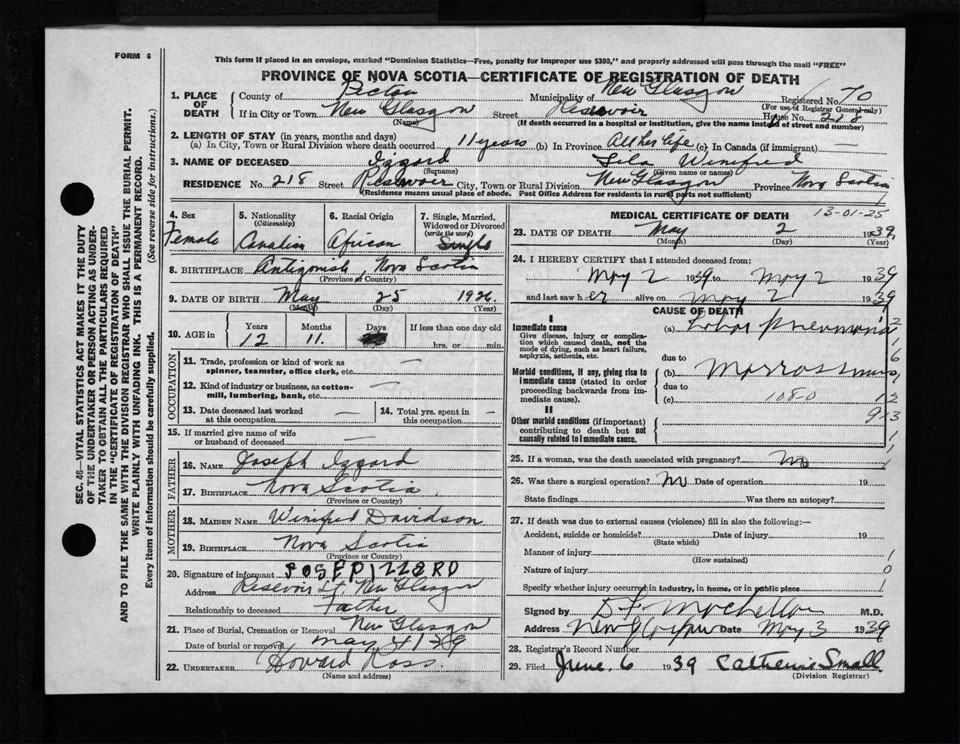 FORM 6
This form if placed in an envelope, marked "Dominion Statistics—Free, penalty for improper use $300," and properly addressed will pass through the mail "FREE"
PROVINCE OF NOVA SCOTIA—CERTIFICATE OF REGISTRATION OF DEATH
1. PLACE OF DEATH
County of Pictou Municipality of New Glasgow Registered No. 70
(For use of Registrar General only)
If in City or Town New Glasgow Street Reservoir House No. 218
(Name) (If death occurred in a hospital or institution, give the name instead of street and number)
2. LENGTH OF STAY (in years, months and days)
(a) In City, Town or Rural Division where death occurred 11 years (b) In Province All her life (c) In Canada (if immigrant) —
3. NAME OF DECEASED Izzard Lila Winifred
(Surname) (Given name or names)
RESIDENCE No. 218 Street Reservoir City, Town or Rural Division New Glasgow Province Nova Scotia
(Residence means usual place of abode. Post Office Address for residents in rural parts not sufficient)
4. Sex Female
5. Nationality (Citizenship) Canadian
6. Racial Origin African
7. Single, Married, Widowed or Divorced (write the word) Single
8. BIRTHPLACE Antigonish, Nova Scotia
(Province or Country)
9. DATE OF BIRTH May 25 1926
(Month) (Day) (Year)
10. AGE in Years Months Days If less than one day old
12 11. hrs. or min.
OCCUPATION
11. Trade, profession or kind of work as spinner, teamster, office clerk, etc. —
12. Kind of industry or business, as cotton-mill, lumbering, bank, etc. —
13. Date deceased last worked at this occupation —
14. Total yrs. spent in this occupation —
15. If married give name of wife or husband of deceased —
FATHER
16. NAME Joseph Izzard
17. BIRTHPLACE Nova Scotia
(Province or Country)
MOTHER
18. MAIDEN NAME Winifred Davidson
19. BIRTHPLACE Nova Scotia
(Province or Country)
20. Signature of informant JOSEP IZZERD
Address Reservoir St. New Glasgow
Relationship to deceased Father
21. Place of Burial, Cremation or Removal New Glasgow
Date of burial or removal May 4 1939
22. UNDERTAKER Howard Ross.
(Name and address)
MEDICAL CERTIFICATE OF DEATH 13-01-25
23. DATE OF DEATH May 2 1939
(Month) (Day) (Year)
24. I HEREBY CERTIFY that I attended deceased from:
May 2 1939 to May 2 1939
and last saw her alive on May 2 1939
CAUSE OF DEATH
I
Immediate cause
Give disease, injury or complication which caused death, not the mode of dying, such as heart failure, asphyxia, asthenia, etc.
(a) Lobar Pneumonia
due to
Morbid conditions, if any, giving rise to immediate cause (stated in order proceeding backwards from immediate cause)
(b)
due to
(c) 1080
II
Other morbid conditions (if important) contributing to death but not causally related to immediate cause.
25. If a woman, was the death associated with pregnancy? No
26. Was there a surgical operation? No Date of operation 19
State findings Was there an autopsy?
27. If death was due to external causes (violence) fill in also the following:—
Accident, suicide or homicide? Date of injury 19
(State which)
Manner of injury
(How sustained)
Nature of injury
Specify whether injury occurred in industry, in home, or in public place
Signed by M.D.
Address New Glasgow Date May 3 1939
28. Registrar's Record Number
29. Filed June. 6 1939 Catherine Small
(Division Registrar)
SEC. 46—VITAL STATISTICS ACT MAKES IT THE DUTY
OF THE UNDERTAKER OR PERSON ACTING AS UNDER-
TAKER TO OBTAIN ALL THE PARTICULARS REQUIRED
IN THE "CERTIFICATE OF REGISTRATION OF DEATH"
AND TO FILE THE SAME WITH THE DIVISION REGISTRAR WHO SHALL ISSUE THE BURIAL PERMIT.
WRITE PLAINLY WITH UNFADING INK. THIS IS A PERMANENT RECORD.
Every item of information should be carefully supplied. (See reverse side for instructions.)